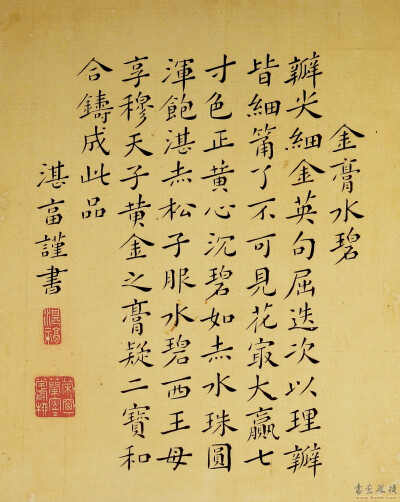 金膏水碧
瓣尖細金英句屈迭次以理瓣
皆細筩了不可見花㝡大贏七
寸色正黄心沉碧如赤水珠圓
渾飽湛赤松子服水碧西王母
享穆天子黄金之膏疑二寶和
合鑄成此品
湛富謹書